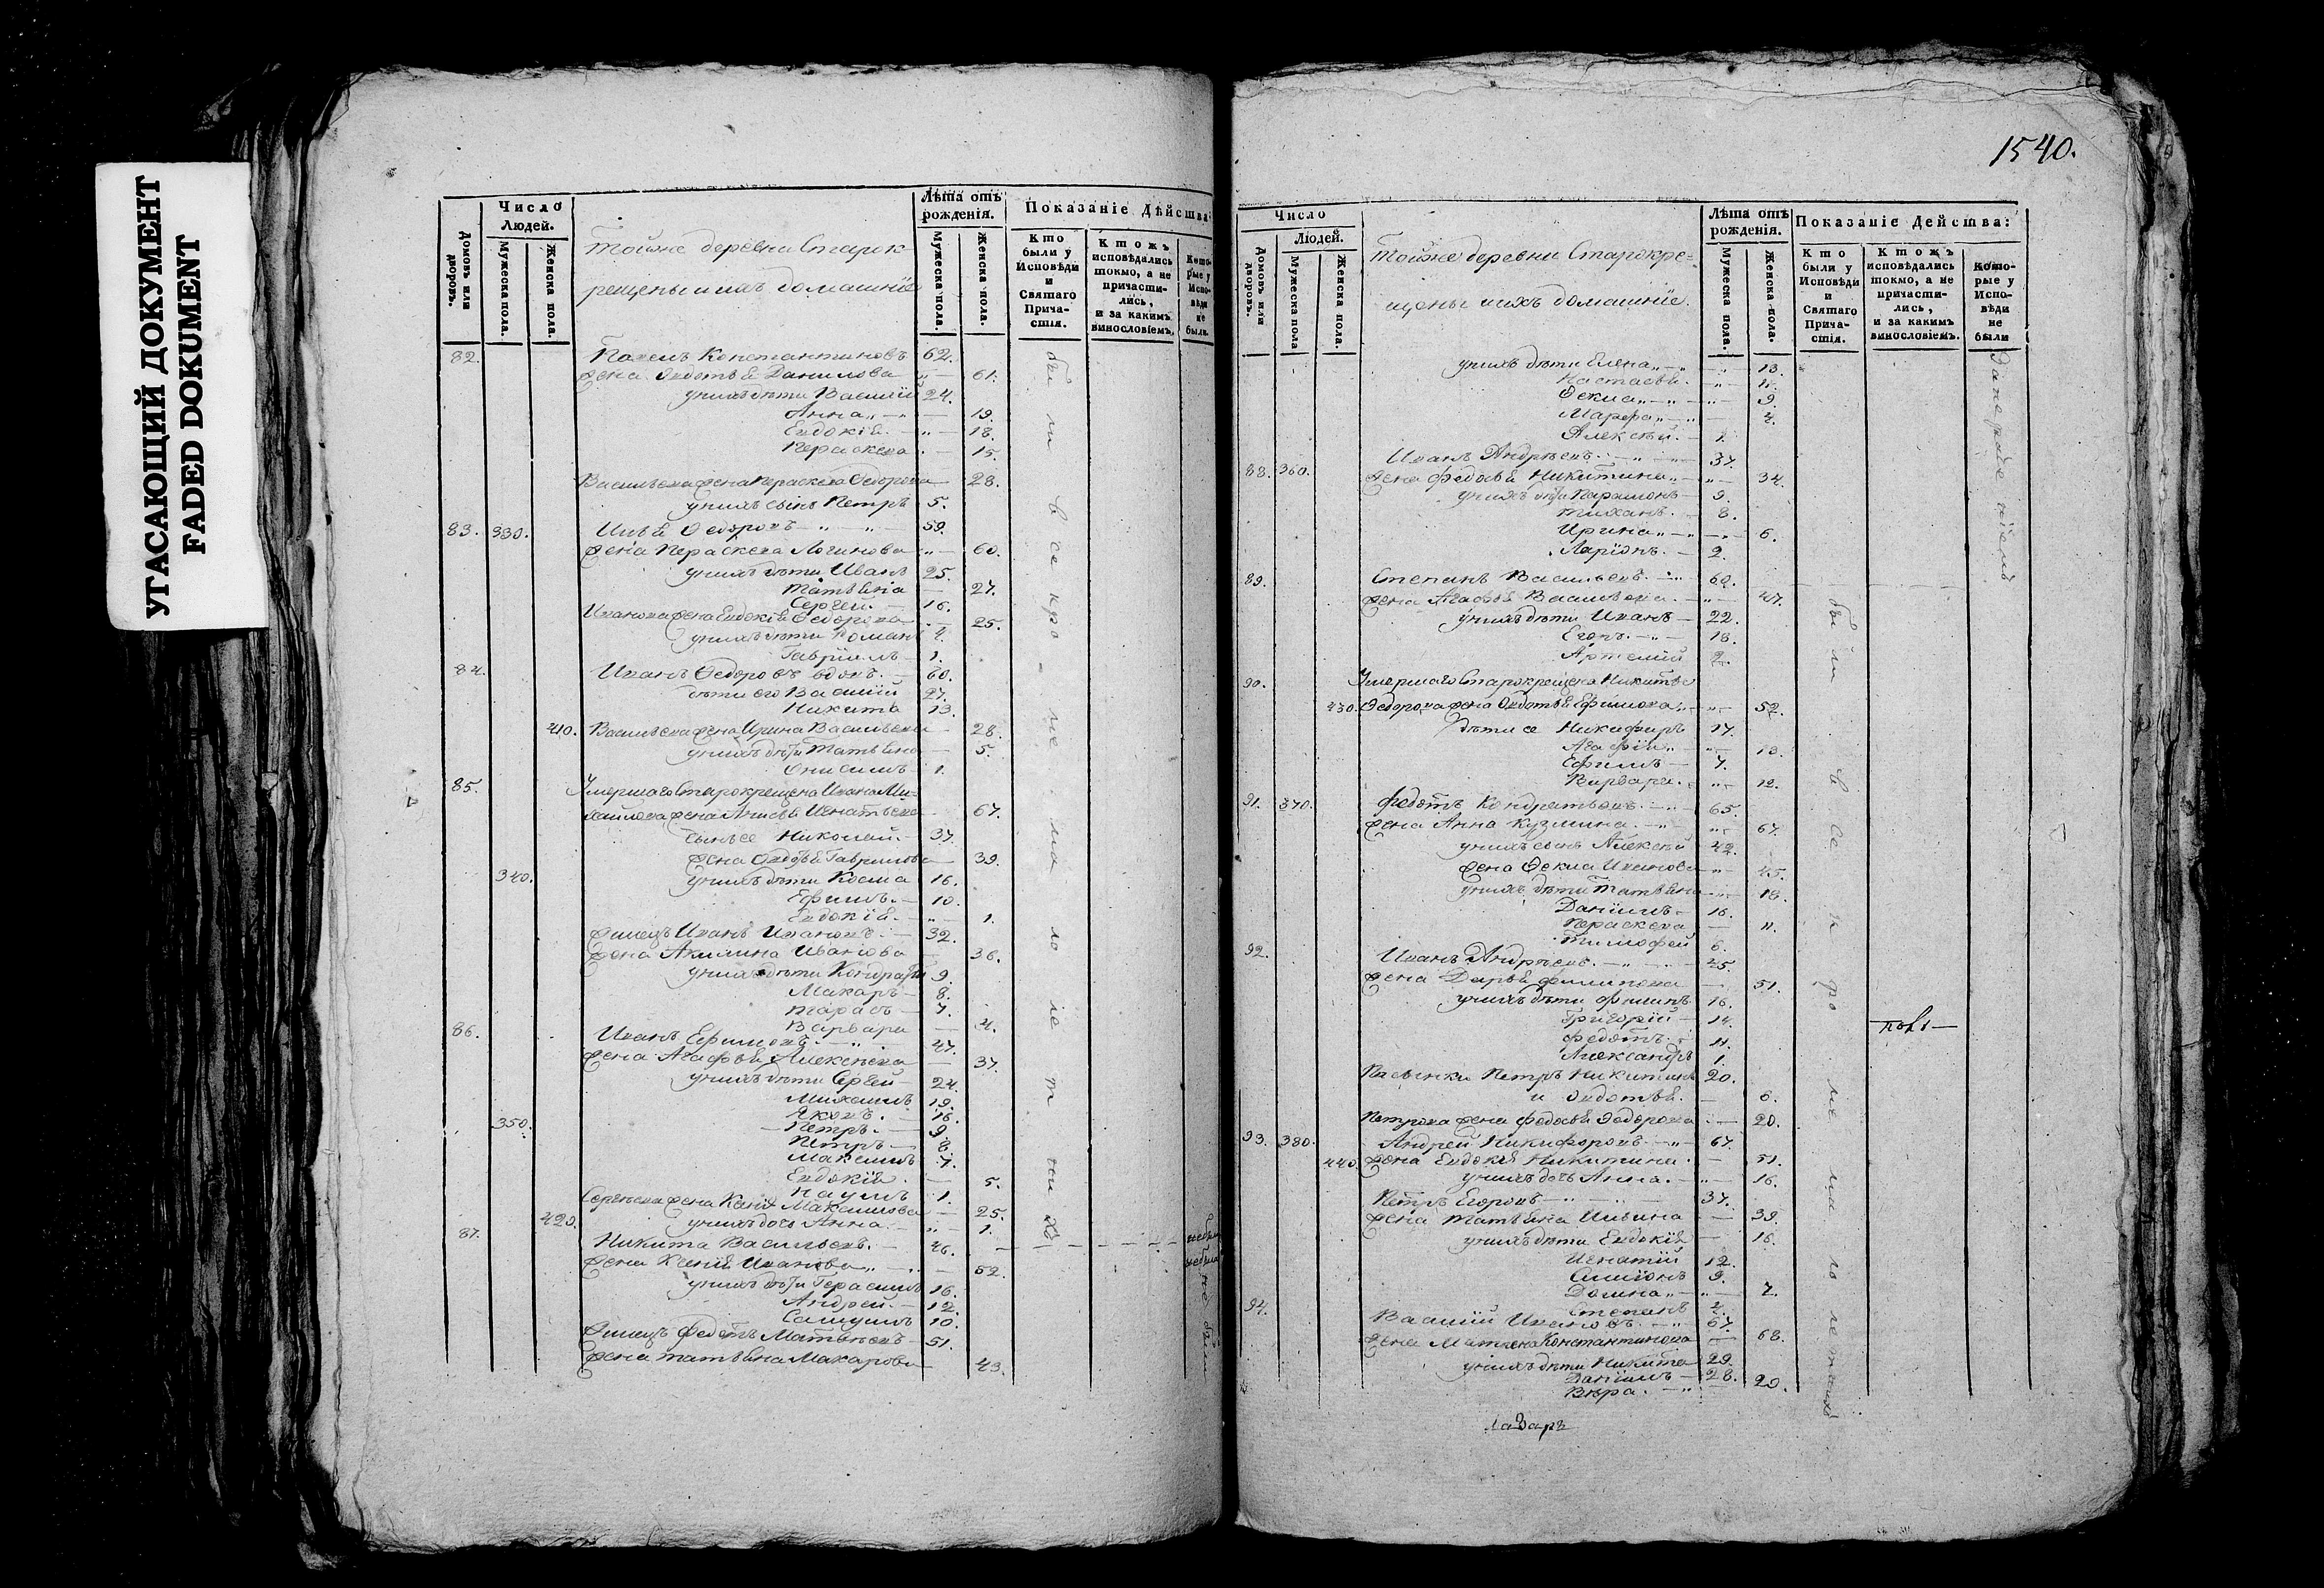 УГАСАЮЩИЙ ДОКУМЕНТ
FADED DOKUMENT
Число Людей.
Лѣта отъ рожденія.
Показаніе Дѣйства
Домовъ или дворовъ.
Мужеска пола.
Женска пола.
Тойже деревни Старок
рещены и ихъ домашнїе
Мужеска пола.
Женска пола.
Кто были у Исповѣди и Святаго Прича-стія.
Ктожъ исповѣдались токмо, а не причасти-лись, и за какимъ винословіемъ.
Кото-рые у Испо-вѣди не были.
82. Павелъ Константиновъ 62.
жена Авдотья Данилова 61.
у нихъ дѣти Василїй 24.
Анна 19.
Евдокїя 18.
Параскева 15.
Васильева жена Параскева Ѳедорова 28.
у нихъ сынъ Петръ 5.
83. 330. Илья Ѳедоровъ 59.
жена Параскева Логинова 60.
у нихъ дѣти Иванъ 25.
Татьяна 27.
Сергей 16.
Иванова жена Евдокїя Ѳедорова 25.
у нихъ дѣти Романъ 4.
Гаврїилъ 1.
84. Иванъ Ѳедоровъ вдовъ 60.
дѣти его Василїй 27.
Никита 13.
410. Васильева жена Ирина Васильева 28.
у нихъ дѣти Татьяна 5.
Онисимъ 1.
85. Умершаго Старокрещена Ивана Ми-
хайлова жена Анисья Игнатьева 67.
сынъ ее Николай 37.
жена Авдотья Гаврилова 39.
340. у нихъ дѣти Косма 16.
Ефимъ 10.
Евдокїя 1.
Иванъ Ивановъ 32.
жена Акилина Иванова 36.
у нихъ дѣти Кондратїй 9.
Макаръ 8.
Тарасъ 7.
Варвара 4.
86. Иванъ Ефимовъ 47.
жена Агафья Алексѣева 37.
у нихъ дѣти Сергей 24.
Михаилъ 19.
Яковъ 16.
350. Петръ 9
Петръ 8.
Максимъ 7.
Евдокїя 5.
Наумъ 1.
Сергѣева жена Ксенїя Максимова 25.
420. у нихъ дочь Анна 1.
87. Никита Васильевъ 46.
жена Ксенїя Иванова 52.
у нихъ дѣти Герасимъ 16.
Андрей 12.
Самуилъ 10.
Федотъ Матвѣевъ 51.
жена Татьяна Макарова 43.
бы ли в се кро ме ма ло ле т ни хъ
не были
1540.
Число Людей.
Лѣта отъ рожденія.
Показаніе Действа:
Домовъ или дворовъ.
Мужеска пола
Женска пола.
Тойже деревни Старокре=
щены и ихъ домашнїе.
Мужеска пола.
Женска пола.
Кто были у Исповѣди и Святаго Прича-стія.
Ктожъ исповѣдались токмо, а не причасти-лись, и за какимъ винословіемъ.
Кото-рые у Испо-вѣди не были
у нихъ дѣти Елена 13.
Настасья 11.
Ѳекла 9.
Марѳа 4.
Алексѣй 1.
88. 360. Иванъ Андрѣевъ 37.
жена Федосья Никитина 34.
у нихъ дѣти Парамонъ 9.
8.
Ирина 6.
Ларїонъ 2.
89. Степанъ Васильевъ 60.
жена Агафья Васильева 47.
у нихъ дѣти Иванъ 22.
Егоръ 18.
Артемїй 2.
90. Умершаго Старокрещена Никиты
430. Ѳедорова жена Авдотья Ефимова 52.
дѣти ее Никифоръ 17.
Агафїя 13.
Ефимъ 7.
Варвара 12.
91. 370. Федотъ Кондратьевъ 65.
жена Анна Кузмина 67.
у нихъ сынъ Алексѣй 42.
жена Ѳекла Иванова 45.
у нихъ дѣти Татьяна 18.
Данїилъ 16.
Параскева 11.
Тимофей 6.
92. Иванъ Андрѣевъ 45.
жена Дарья Филипова 51.
у нихъ дѣти Филипъ 16.
Григорїй 14.
Федотъ 11.
Александръ 1.
Пасынки Петръ Никитинъ 20.
и Авдотья 6.
Петрова жена Федосья Ѳедорова 20.
93. 380. Андрей Никифоровъ 67.
440. жена Евдокїя Никитина 51.
у нихъ дочь Анна 16.
Петръ Егоровъ 37.
жена Татьяна Ильина 39.
у нихъ дѣти Евдокїя 16.
Игнатїй 12.
Симїонъ 9.
Домна 7.
Степанъ 4.
94. Василїй Ивановъ 67.
жена Матрена Константинова 68.
у нихъ дѣти Никита 29.
Данїилъ 28.
Вѣра 20.
бы ли в се к ро ме ма ло ле тнихъ
Лазарь